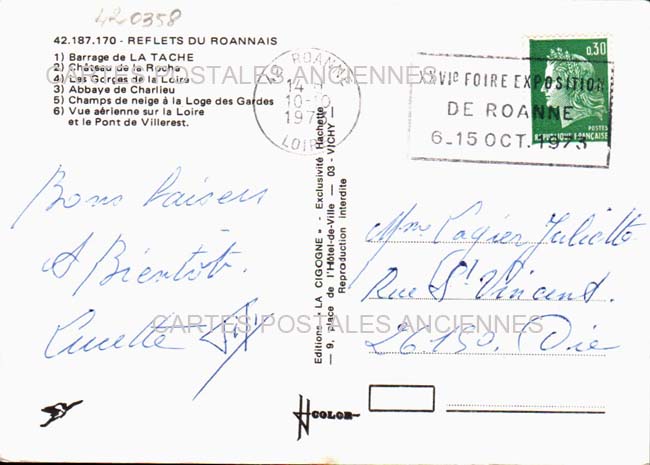 420358
42.187.170 - REFLETS DU ROANNAIS
1) Barrage de LA TACHE
2) Château de la Roche
4) Les Gorges de la Loire
3) Abbaye de Charlieu
5) Champs de neige à la Loge des Gardes
6) Vue aérienne sur la Loire
et le Pont de Villerest.
CARTES POSTALES ANCIENNES
ROANNE
14 H
10-10
1973
LOIRE
XXVIe FOIRE EXPOSITION
DE ROANNE
6-15 OCT. 1973
0,30
POSTES
REPUBLIQUE FRANÇAISE
Bons baisers
A Bientôt.
Lucette
Editions « LA CIGOGNE » - Exclusivité Hachette
— 9, place de l'Hôtel-de-Ville — 03 - VICHY
Reproduction interdite
Mme Lagier Juliette
Rue St Vincent.
26150. Die
CARTES POSTALES ANCIENNES
COLOR